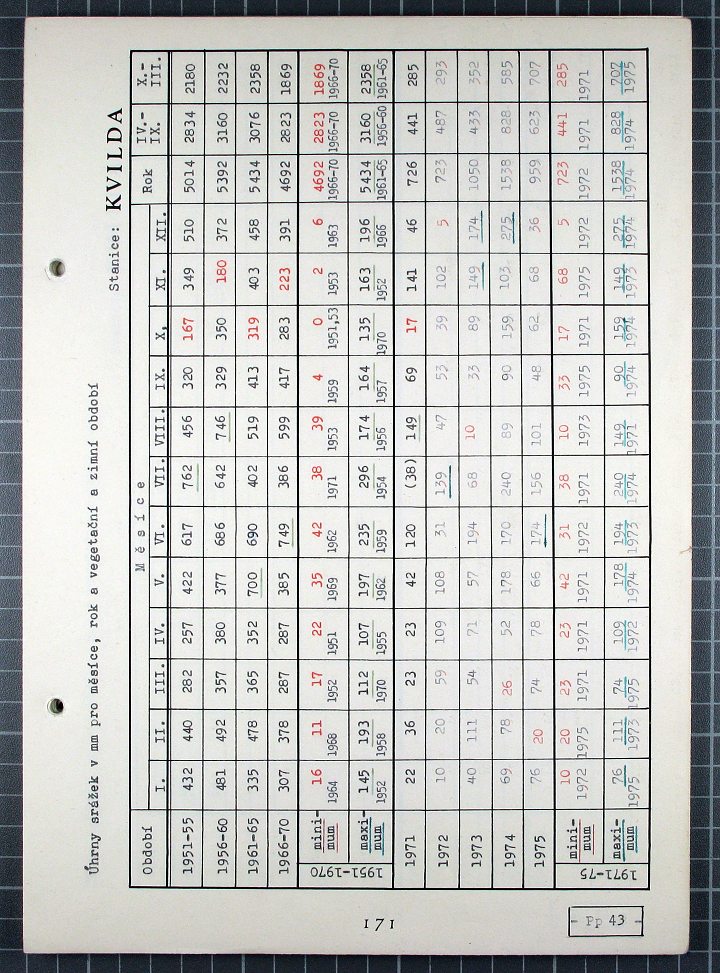 Úhrny srážek v mm pro měsíce, rok a vegetační a zimní období
Stanice: KVILDA
Období Měsíce Rok IV.-IX. X.-III.
I. II. III. IV. V. VI. VII. VIII. IX. X. XI. XII.
1951-55 432 440 282 257 422 617 762 456 320 167 349 510 5014 2834 2180
1956-60 481 492 357 380 377 686 642 746 329 350 180 372 5392 3160 2232
1961-65 335 478 365 352 700 690 402 519 413 319 403 458 5434 3076 2358
1966-70 307 378 287 287 385 749 386 599 417 283 223 391 4692 2823 1869
1951-1970
mini- 16 11 17 22 35 42 38 39 4 0 2 6 4692 2823 1869
mum 1964 1968 1952 1951 1969 1962 1971 1953 1959 1951,53 1953 1963 1966-70 1966-70 1966-70
maxi- 145 193 112 107 197 235 296 174 164 135 163 196 5434 3160 2358
mum 1952 1958 1970 1955 1962 1959 1954 1956 1957 1970 1952 1966 1961-65 1956-60 1961-65
1971 22 36 23 23 42 120 (38) 149 69 17 141 46 726 441 285
1972 10 20 59 109 108 31 139 47 53 39 102 5 723 487 293
1973 40 111 54 71 57 194 68 10 33 89 149 174 1050 433 352
1974 69 78 26 52 178 170 240 89 90 159 103 275 1538 828 585
1975 76 20 74 78 66 174 156 101 48 62 68 36 959 623 707
1971-75
mini- 10 20 23 23 42 31 38 10 33 17 68 5 723 441 285
mum 1972 1975 1971 1971 1971 1972 1971 1973 1975 1971 1975 1972 1972 1971 1971
maxi- 76 111 74 109 178 194 240 149 90 159 149 275 1538 828 707
mum 1975 1973 1975 1972 1974 1973 1974 1971 1974 1974 1973 1974 1974 1974 1975
171
Pp 43